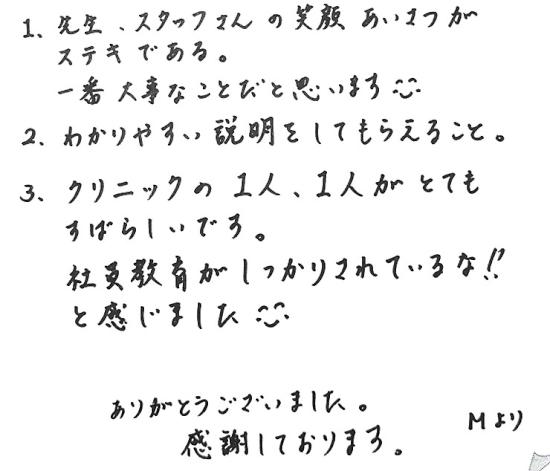 1、先生、スタッフさんの笑顔 あいさつが
ステキである。
一番大事なことだと思います
2、わかりやすい説明をしてもらえること。
3、クリニックの1人、1人がとても
すばらしいです。
社員教育がしっかりされているな!!
と感じました
ありがとうございました。
感謝しております。
Mより